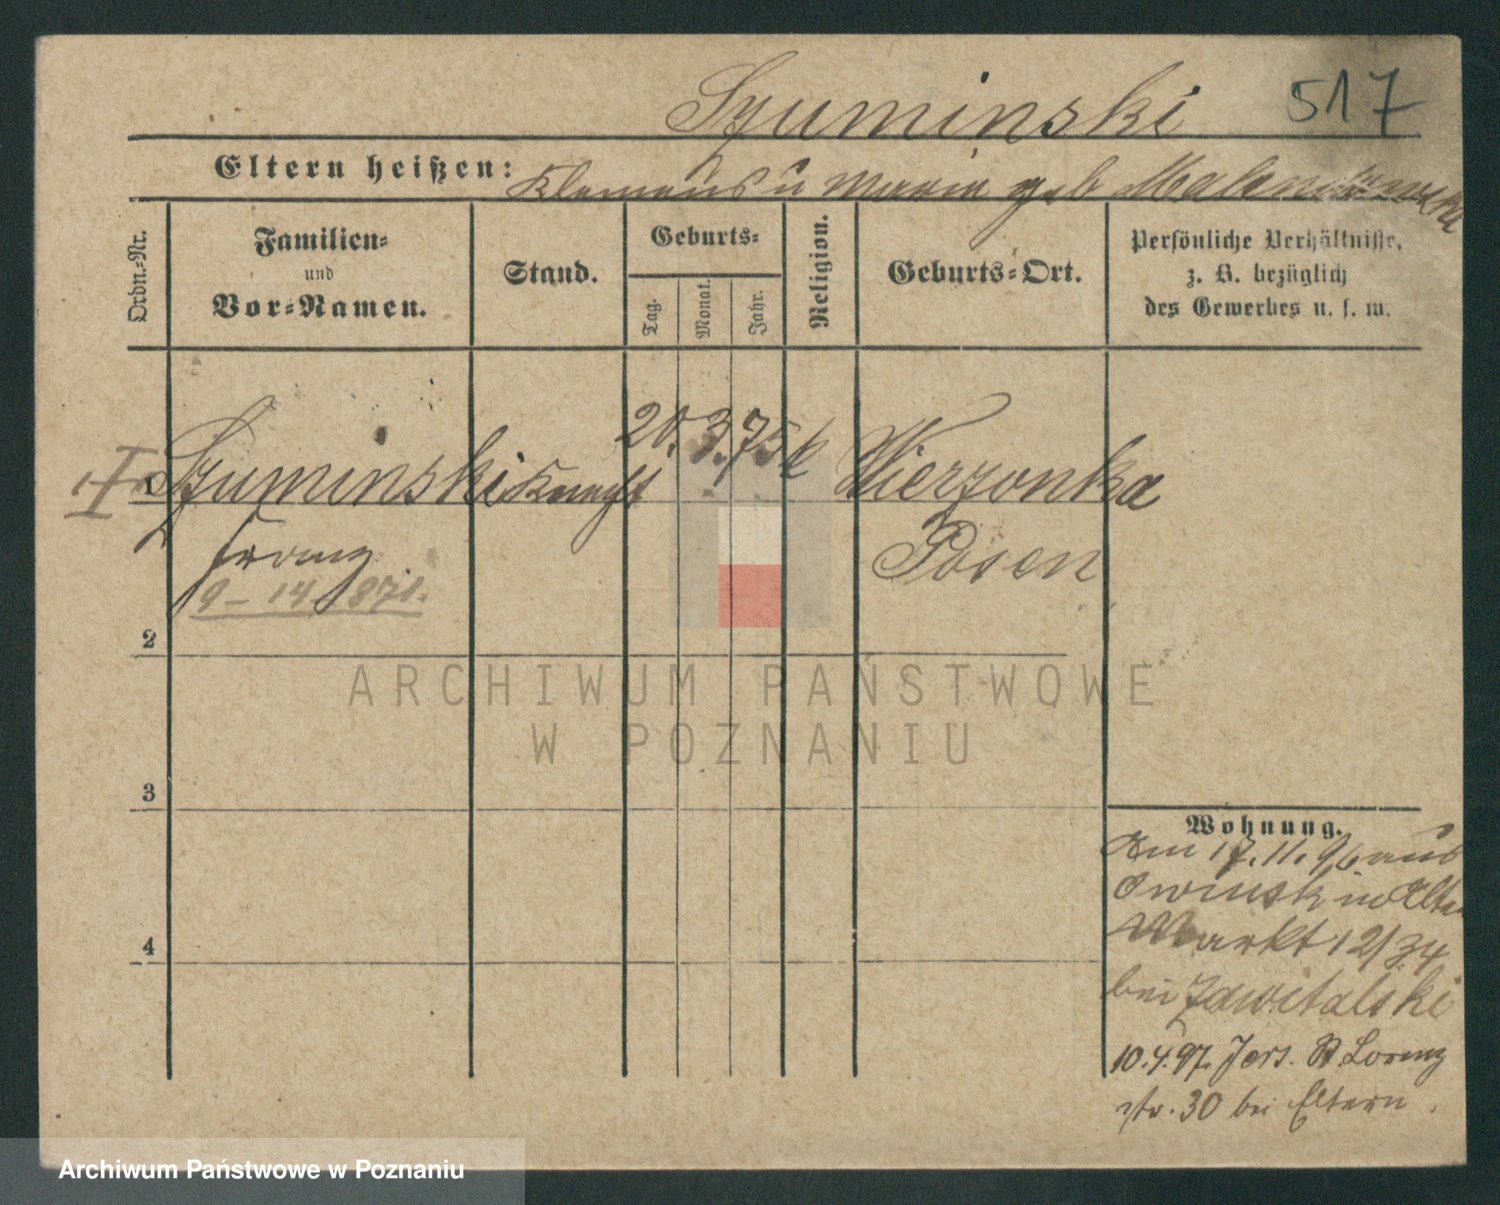 Szuminski 517
Eltern heißen: Klemens u Maria geb
Ordn.-Nr.
Familien-
und
Vor-Namen.
Stand.
Geburts-
Tag.
Monat.
Jahr.
Religion.
Geburts-Ort.
Persönliche Verhältnisse,
z. B. bezüglich
des Gewerbes u. s. w.
I 1 Szuminski Knecht 20. 3. 75 k Wierzonka
Franz Posen
9 - 14. 871.
2
3
4
Wohnung.
Am 17.11.96 aus
Owinsk in Alten
Markt 12/34
bei Zawitalski
10.4.97. Jers. St Lorenz
str. 30 bei Eltern.
ARCHIWUM PAŃSTWOWE
W POZNANIU
Archiwum Państwowe w Poznaniu